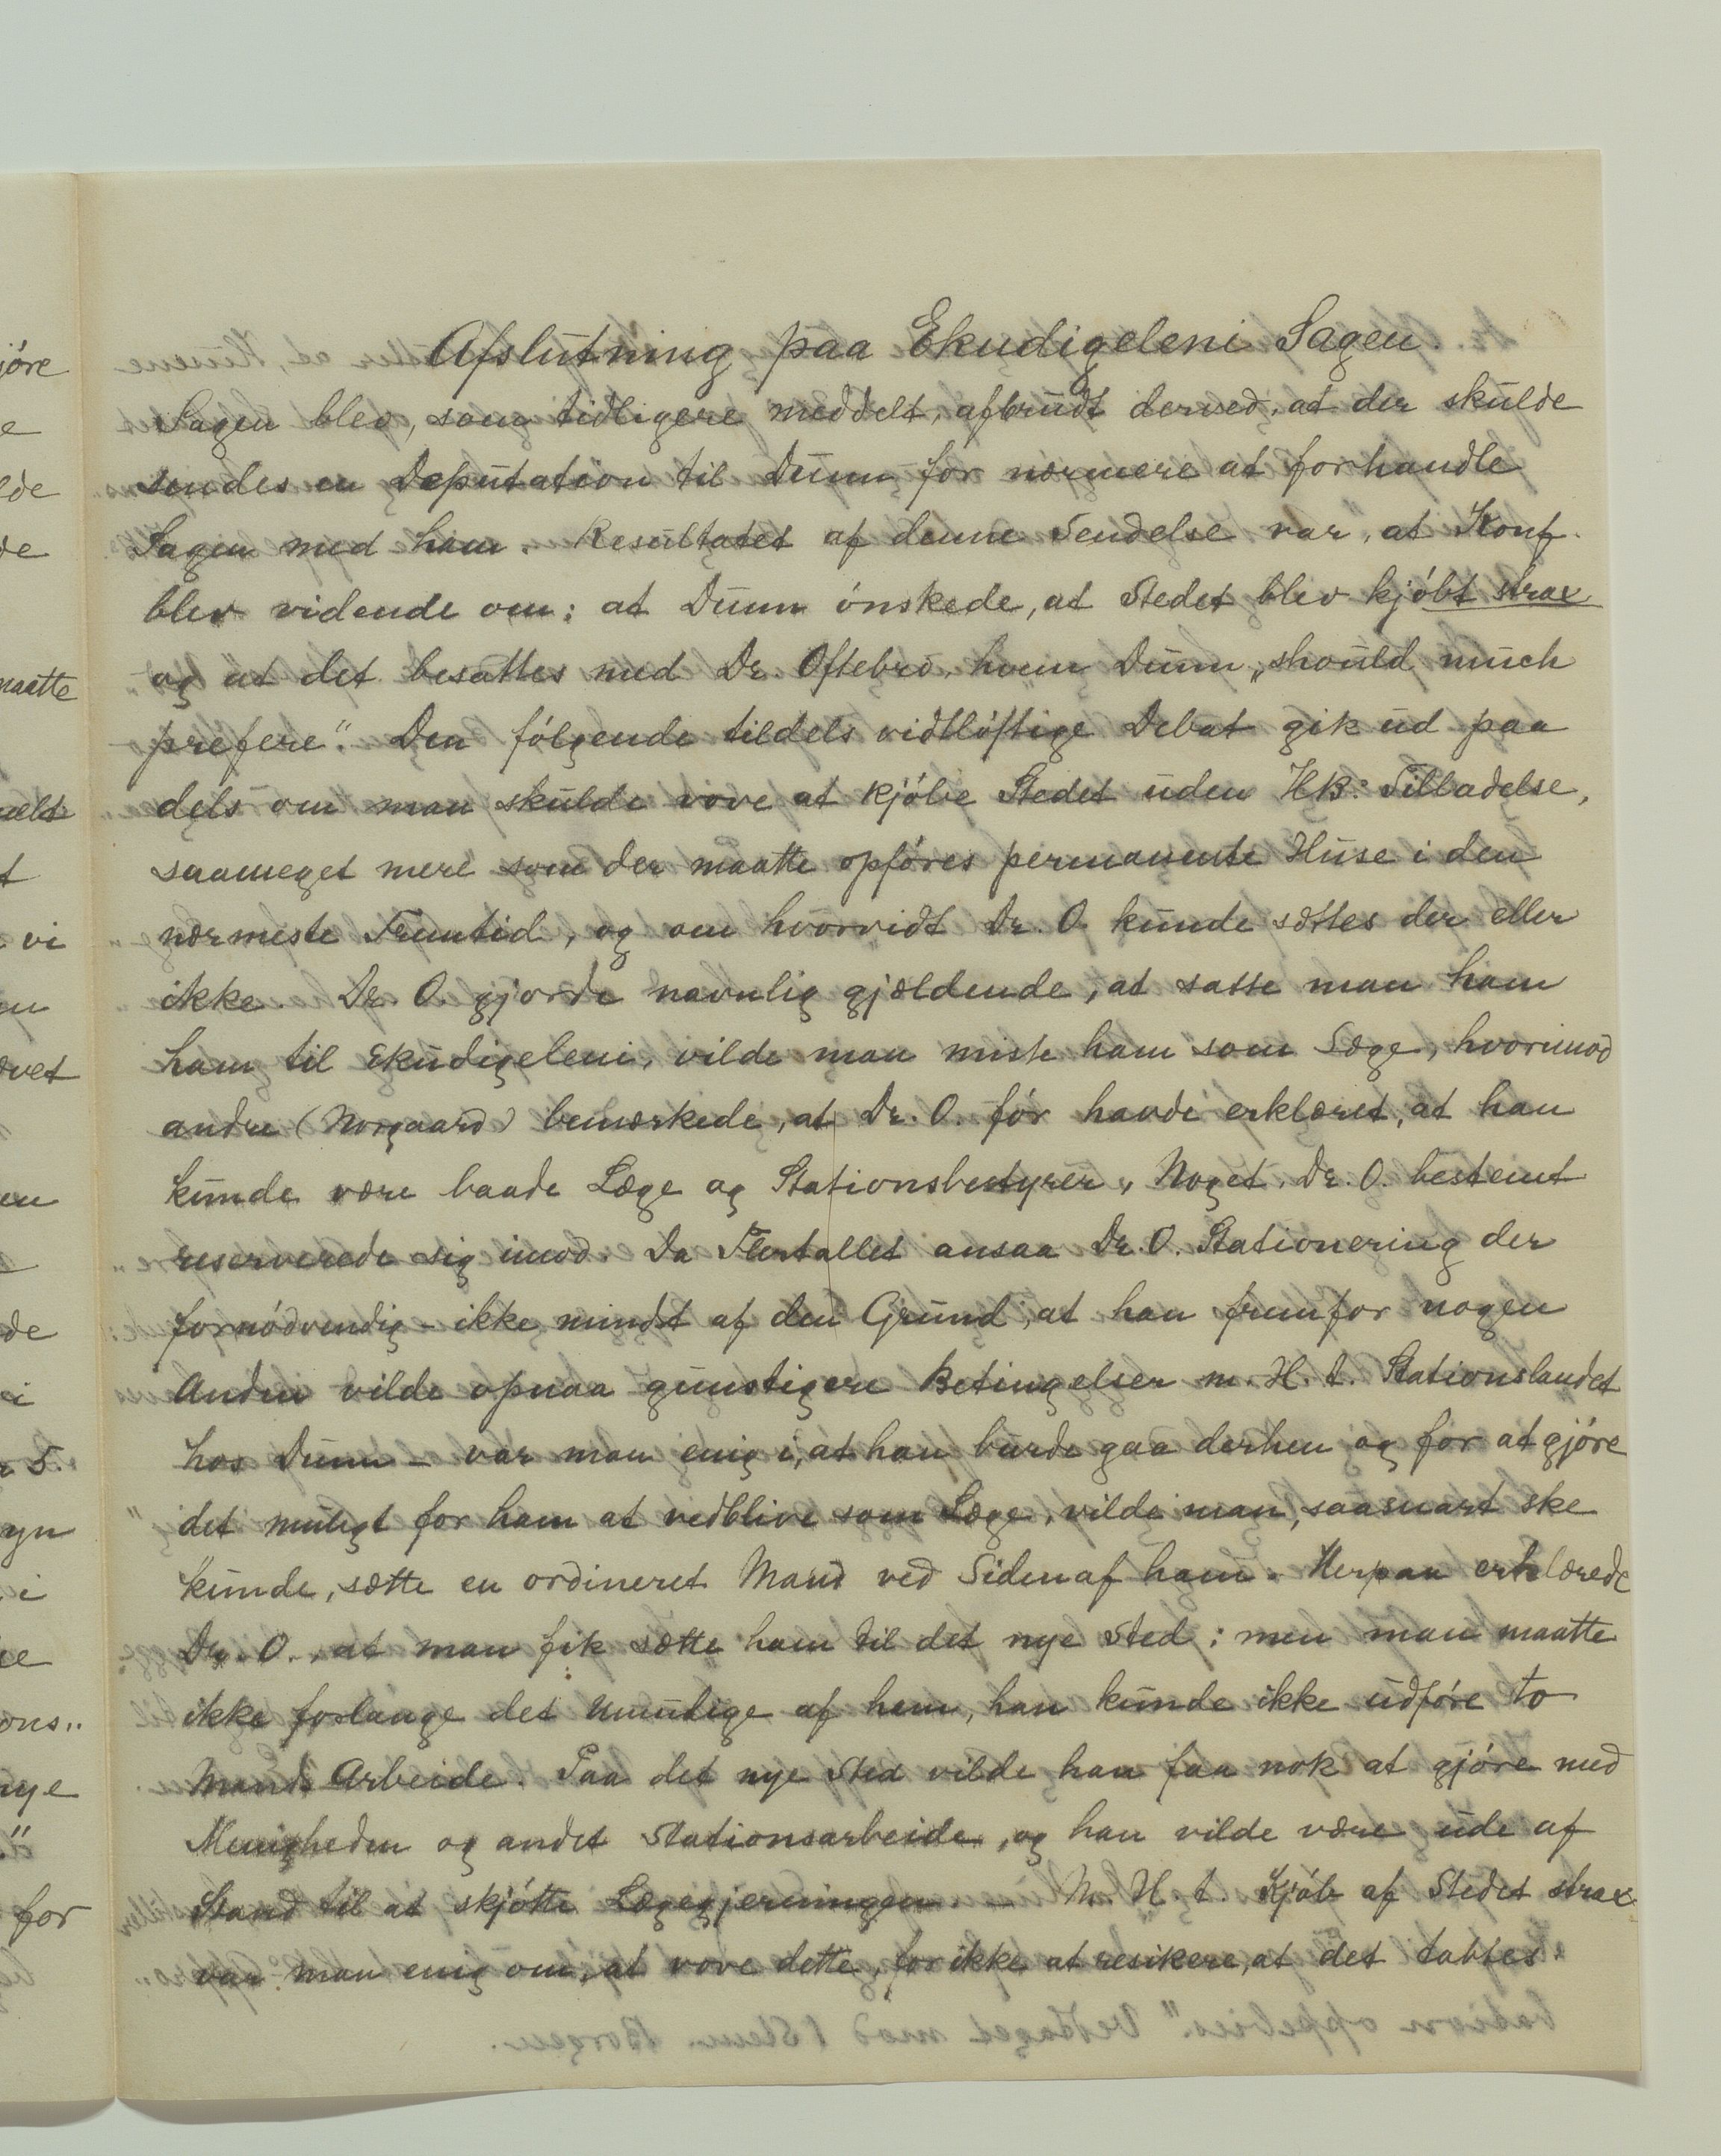 Afslutning paa Ekudigeleni Sagen
Sagen blev, som tidligere meddelt, afbrudt derved, at der skulde
sendes en Deputation til Dunn for nærmere at forhandle
Sagen med ham. Resultatet af denne Sendelse var, at Konf.
blev vidende om: at Dunn ónskede, at Stedet blev kjóbt strax
og at det besattes med Dr. Oftebro, hvem Dunn „should much
prefere". Den fólgende tildels vidtlóftige Debat gik ud paa
dels om man skulde vove at kjóbe Stedet uden HB: Tilladelse,
saameget mere som der maatte opfóres permanente Huse i den
nærmeste Fremtid, og om hvorvidt Dr. O. kunde sættes der eller
ikke. Dr. O. gjorde navnlig gjældende, at satte man ham
ham til Ekudigeleni, vilde man miste ham som Læge, hvorimod
andre (Norgaard) bemærkede, at Dr. O. fór havde erklæret, at han
kunde være baade Læge og Stationsbestyrer, Noget, Dr. O. bestemt
reserverede sig imod. Da Flertallet ansaa Dr. O. Stationering der
fornódvendig - ikke mindst af den Grund, at han fremfor nogen
Anden vilde opnaa gunstigere Betingelser m. H. t. Stationslandet
hos Dunn - var man enig i, at han burde gaa derhen og for at gjóre
det muligt for ham at vedblive som Læge, vilde man, saasnart ske
kunde, sætte en ordineret Mand ved Siden af ham. Herpaa erklærede
Dr. O., at man fik sætte ham til det nye Sted; men man maatte
ikke forlange det Umulige af ham, han kunde ikke udfóre to
Mands Arbeide. Paa det nye Sted vilde han faa nok at gjóre med
Menigheden og andet Stationsarbeide, og han vilde være ude af
Stand til at skjótte Lægegjerningen. - M. H. t. Kjób af Stedet strax
var man enig om, at vove dette, for ikke at resikere, at det tabtes.